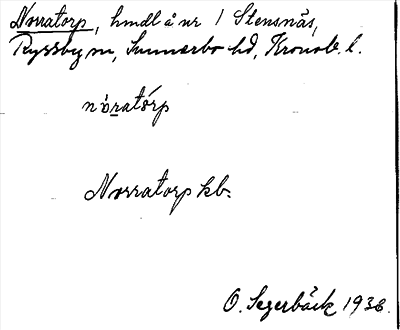 Norratorp, hmdl å nr 1 Stensnäs,
Ryssby sn, Sunnerbo hd, Kronob. l.
nòratórp
Norratorp kb.
O. Segerbäck 1938.